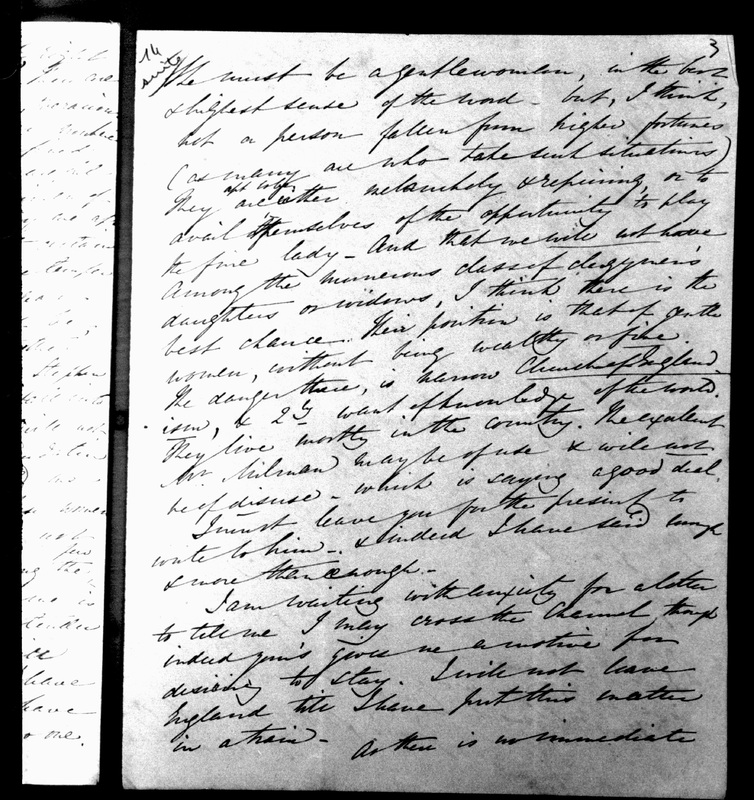 3
14
suite
She must be a gentlewoman, in the best
& highest sense of the word - but, I think,
not a person fallen from higher fortunes
(as many are who take such situations)
They are either melancholy & repining, or to
apt only
avail themselves of the opportunity to play
the fine lady - And that we will not have
Among the numerous class of clergymen's
daughters or widows, I think there is the
best chance. Their position is that of gentle
women, without being wealthy or fine.
The danger there, is narrow Church of England
ism, & 2ly want of knowledge of the world.
They live mostly in the country. The excellent
Mr Milman may be of use & will not
be of disuse - which is saying a good deal.
I must leave you for the present to
write to him - & indeed I have said enough
& more than enough -
I am waiting with anxiety for a letter
to tell me I may cross the Channel though
indeed your's gives me a motive for
desiring to stay. I will not leave
England till I have put this matter
in a train - As there is no immediate